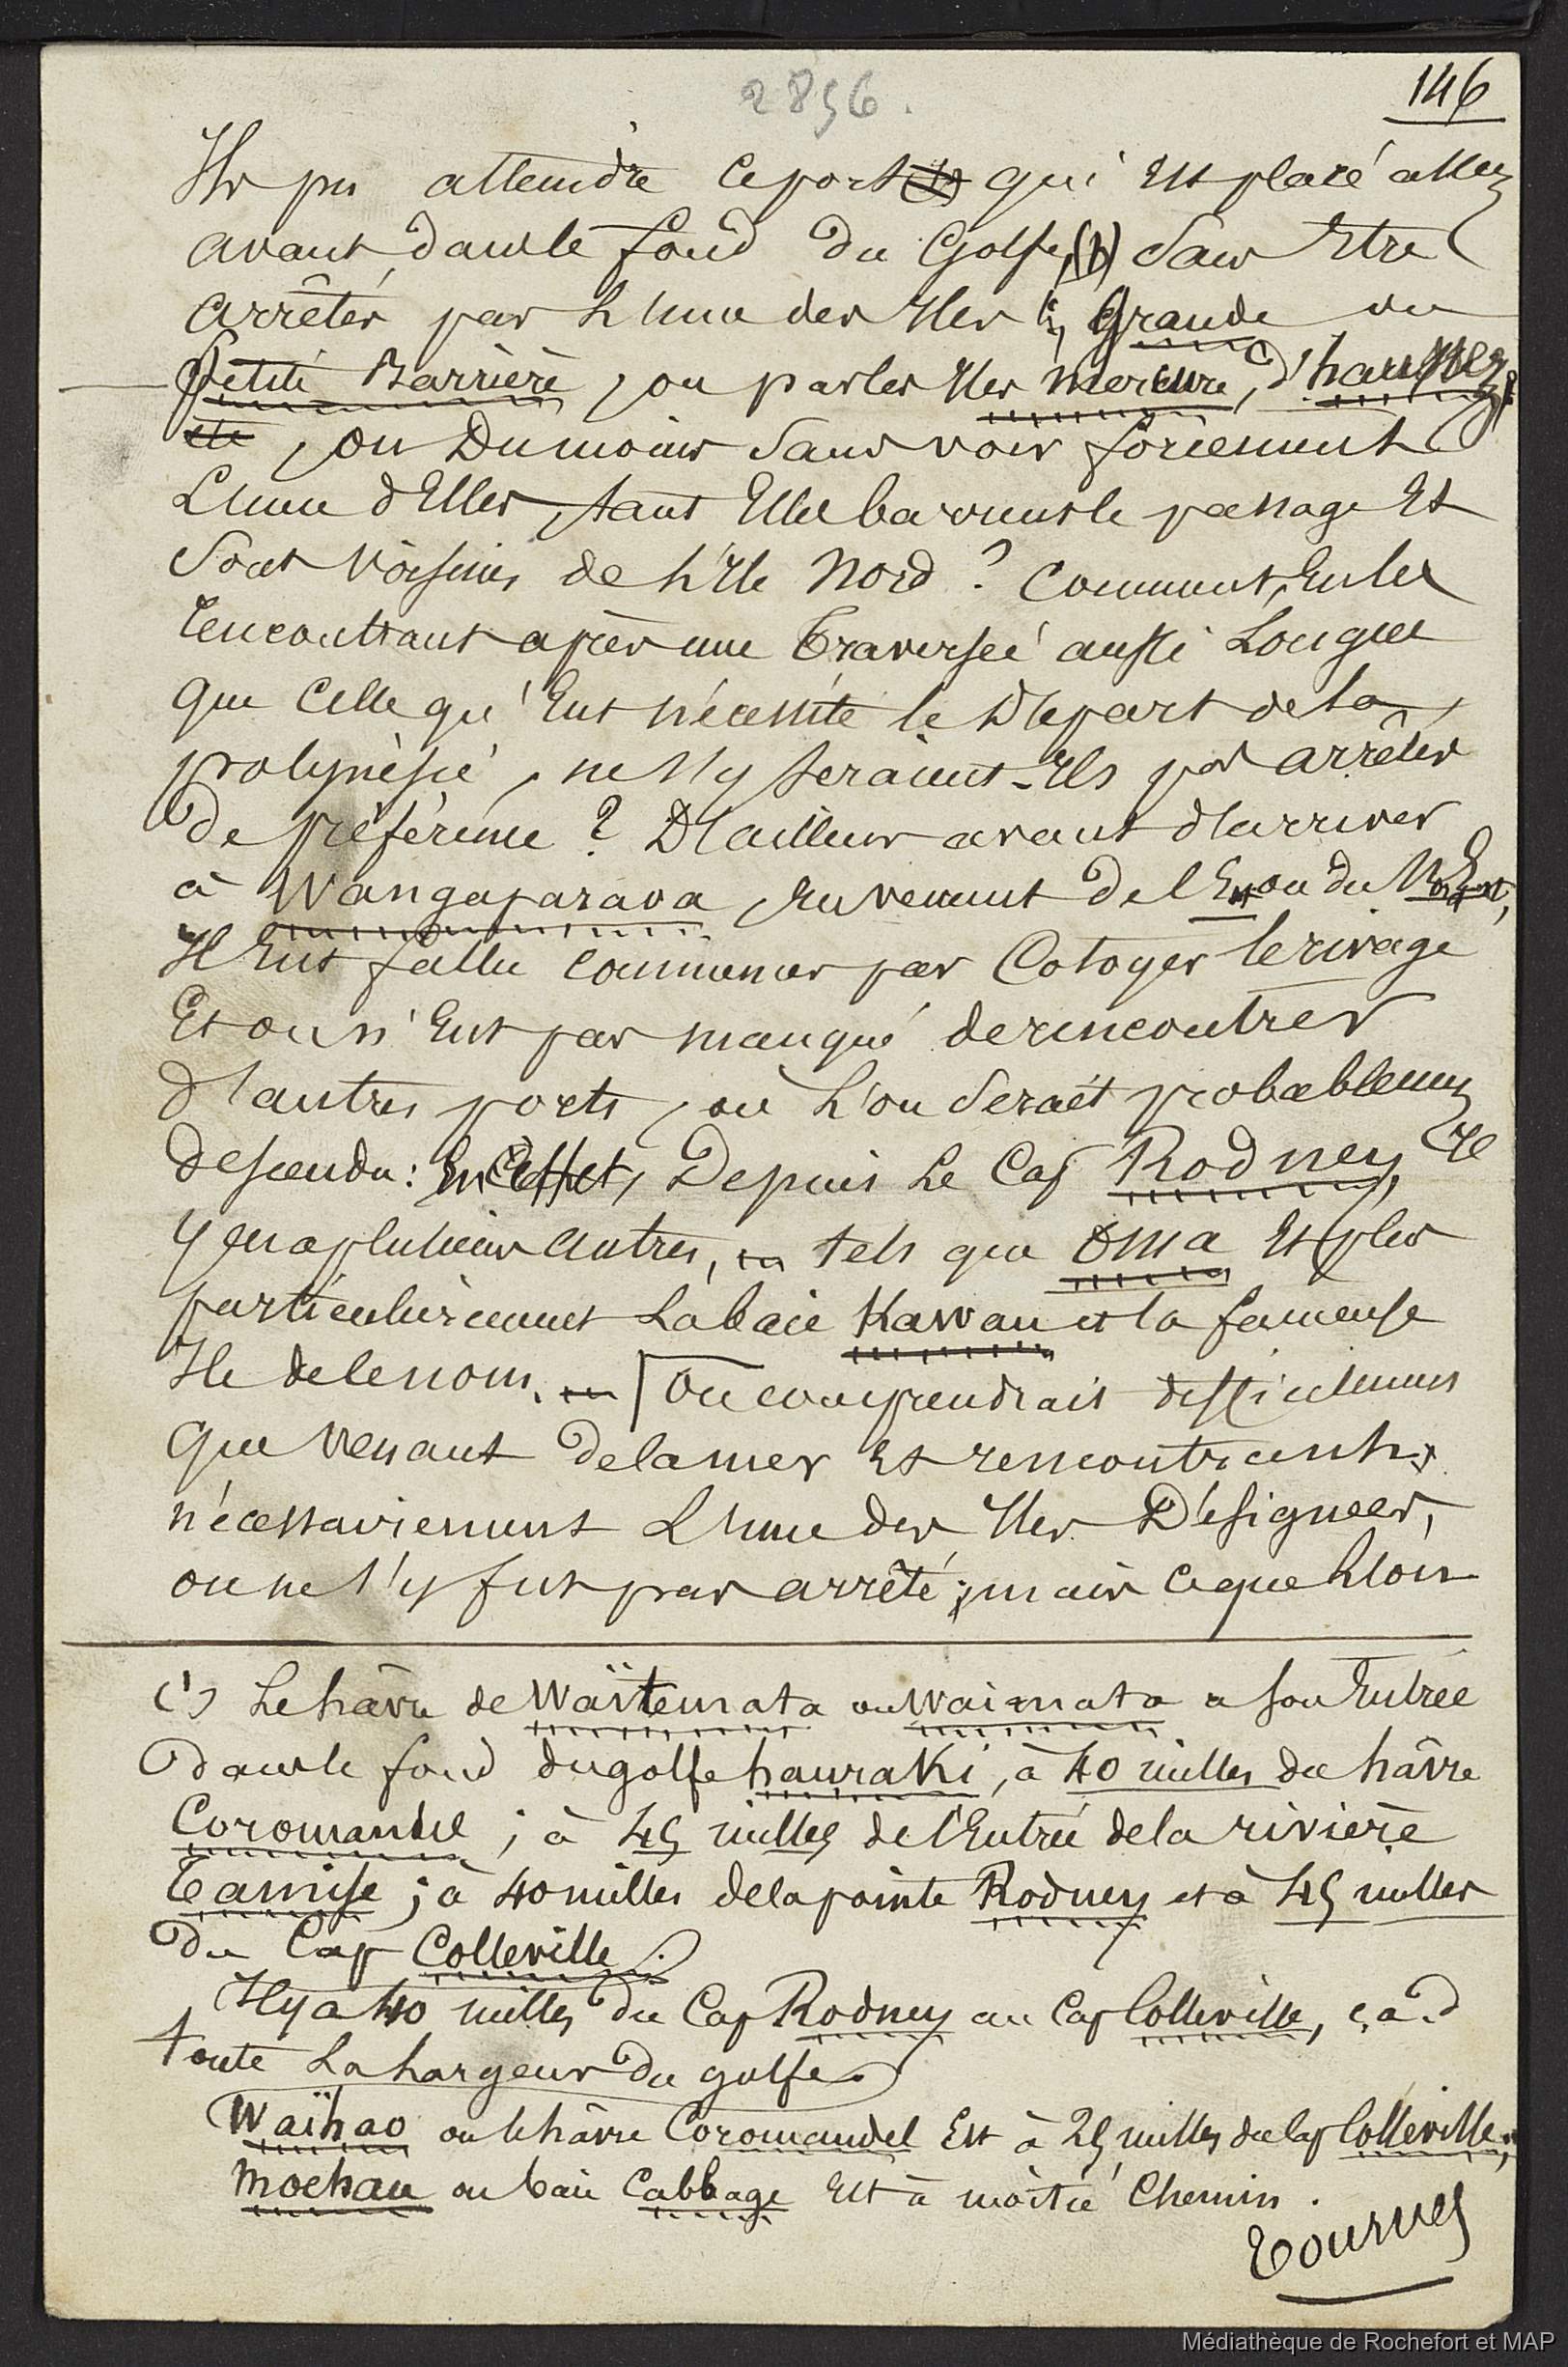 2896.
146
Ils pu atteindre ce port (1) qui Est placé assez
avant dans le fond du Golfe, (1) Sans Etre
arrêtés par L'une des Iles la Grande ou
petite Barrière, ou par les Iles mercure, d'haussez,
etc, ou Du moins Sans voir forcement
L'une d'Elles, tant Elles barrent le passage Et
Sont voisines de L'Ile Nord ? Comment, En les
rencontrant après une Traversée aussi Longue
que Celle qu'Eut nécessité le Départ de la
polynésie, ne S'y Seraient-Ils pas arrêtés
De préférence ? D'ailleurs avant d'arriver
à Wangaparaoa, En venant De l'Est ou du Nord Est,
Il Eut fallu commencer par Cotoyer le rivage
Et on n'Eut pas manqué de rencontrer
d'autres ports, où L'on Serait probablement
descendu : En Effet, Depuis Le Cap Rodney, Il
y en a plusieurs autres, tels que Oma Et plus
particulièrement La baie Kawau et la fameuse
Ile de ce nom. On comprendrait difficilement
que venant De la mer Et rencontrant
nécessairement L'une des Iles Désignées,
on ne S'y fut pas arrêté ; mais ce que L'on
(1) Le hâvre de Waïtemata ou Waimata a Son Entrée
dans le fond du golfe hauraki, à 40 milles du hâvre
Coromandel ; à 45 milles de l'Entrée de la rivière
Tamise ; à 40 milles de la pointe Rodney et à 45 milles
du Cap Colleville.
Il y a 40 milles du Cap Rodney au Cap Colleville, c, à d
toute La Largeur du golfe.
Waïhao ou le hâvre Coromandel Est à 25 milles du Cap Colleville,
Moehau ou baie Cabbage Est à moitié Chemin.
Tournez
Médiathèque de Rochefort et MAP